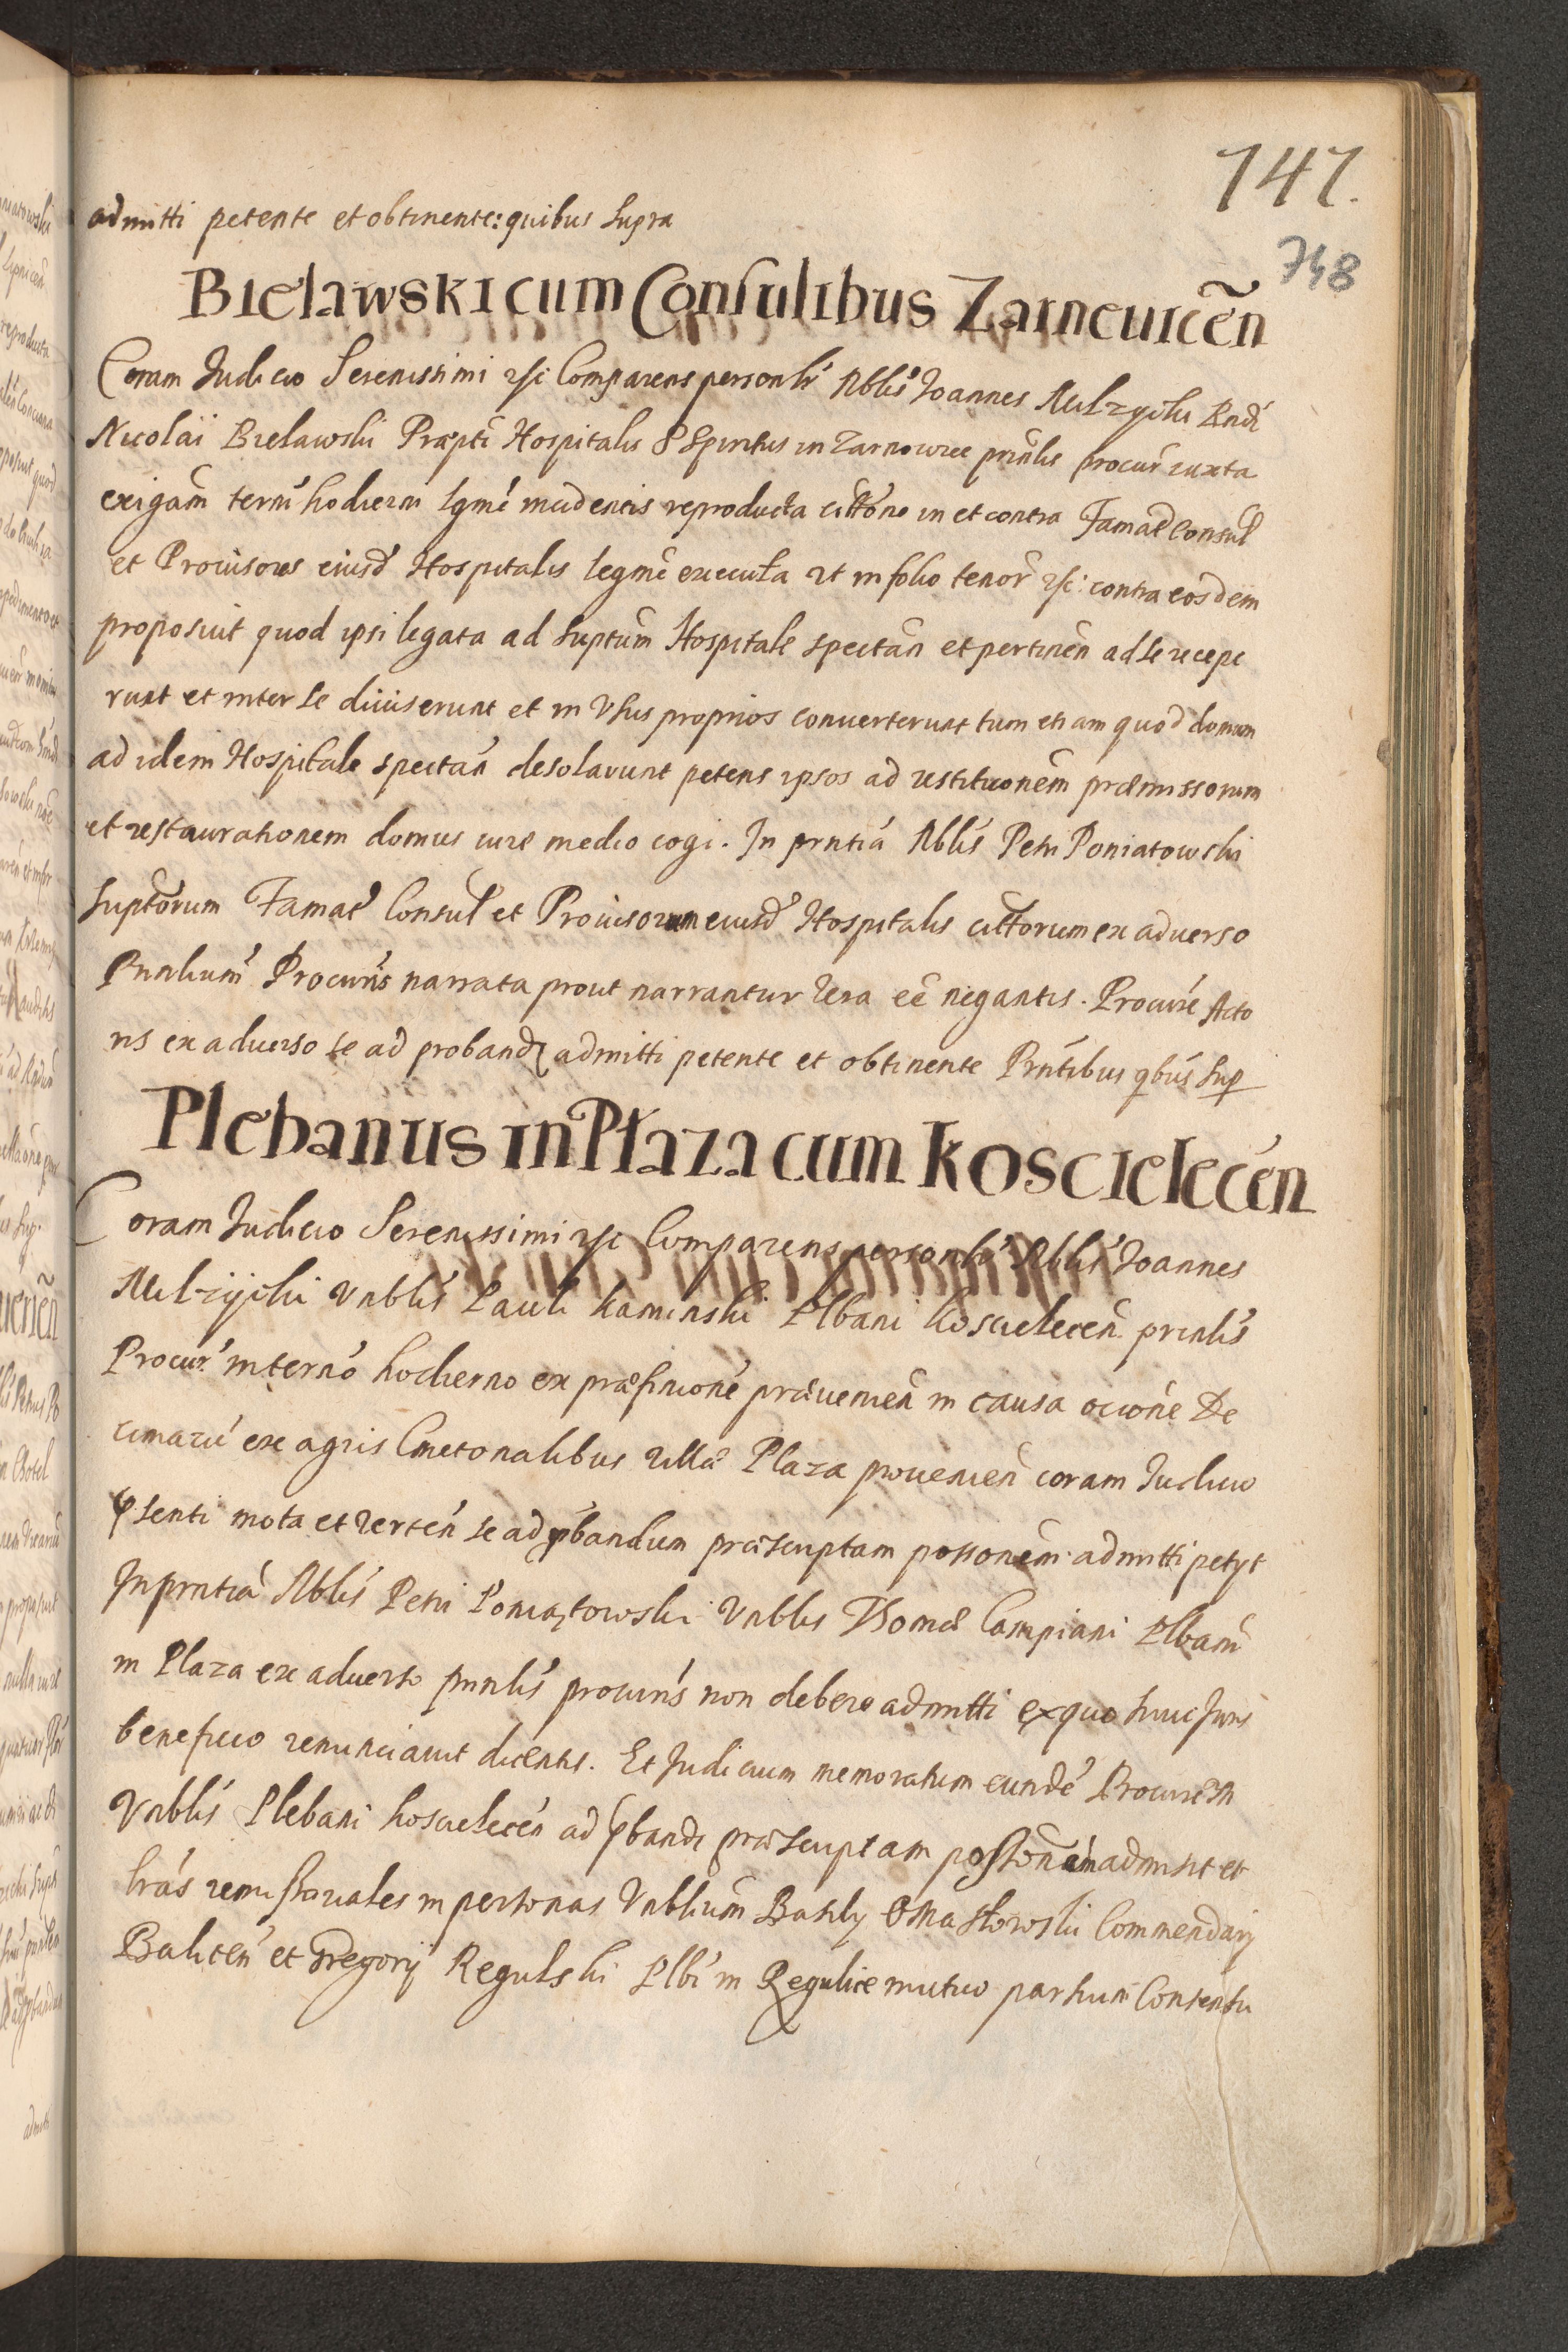 747.
748
admitti petente et obtinente: quibus supra
Bielawski cum Consulibus Zarncuicen̄
Coram Judicio Serenissimi etc Comparens personlr̃ Nblis Joannes Mulzycki Rndi
Nicolai Bielawski Præpti Hospitalis S Spiritus in Zarnowiec prinlis procur̃ iuxta
exigam̃ term̃ hodierni lgme incidentis reproducta cittõne in et contra Famat̃ Consul̃
et Prouisores eiusd Hospitalis legme executa ut in folio tenor̃ etc: contra eosdem
proposuit quod ipsi legata ad suptum̃ Hospitale spectan̄ et pertinen̄ ad se recepe
runt et inter se diuiserunt et in Vsus proprios conuerterunt tum etiam quod domum
ad idem Hospitale spectan̄ desolarunt petens ipsos ad restitucionem̃ præmissorum
et restaurationem domus iure medio cogi. In prntiã Nblis Petri Poniatowski
suptorum̃ Famat̃ Consul̃ et Prouisorum eiusd Hospitalis cittorum ex aduerso
Prinlium̃ Procuris̃ narrata prout narrantur vera eẽ negantis. Procure Acto
ris ex aduerso se ad proband admitti petente et obtinente Prntibus qbus sup
Plebanus in Płaza cum Koscielecen̄
Coram Judicio Serenissimi etc Comparens personlr̃ Nblis Joannes
Mulzycki Vnblis Pauli Kaminski Plbani Koscielecen̄ prinlis
Procur̃ in terno hodierno ex præfinicione præuenien̄ in causa occõne De
cimarũ ex agris Cmetonalibus villæ Plaza prouenien̄ coram Judicio
psenti mota et verten̄ se ad pbandum præscriptam possonem̃ admitti petyt
In prntiã Nblis Petri Poniatowski Vnblis Thomæ Campiani Plbani
in Plaza ex aduerso prinlis procuris̃ non debere admitti ex quo huic Juris
beneficio renunciauit dicentis. Et Judicium memoratum eundẽ Procurem̃
Vnblis Plebani Koscielecen̄ ad pband præscriptam possonem̃ admisit et
lrãs remissoriales in personas Vnblium̃ Basily Omastowski Commendary
Balicen̄ et Gregorij Regulski Plbi in Regulice mutuo partium Consensu